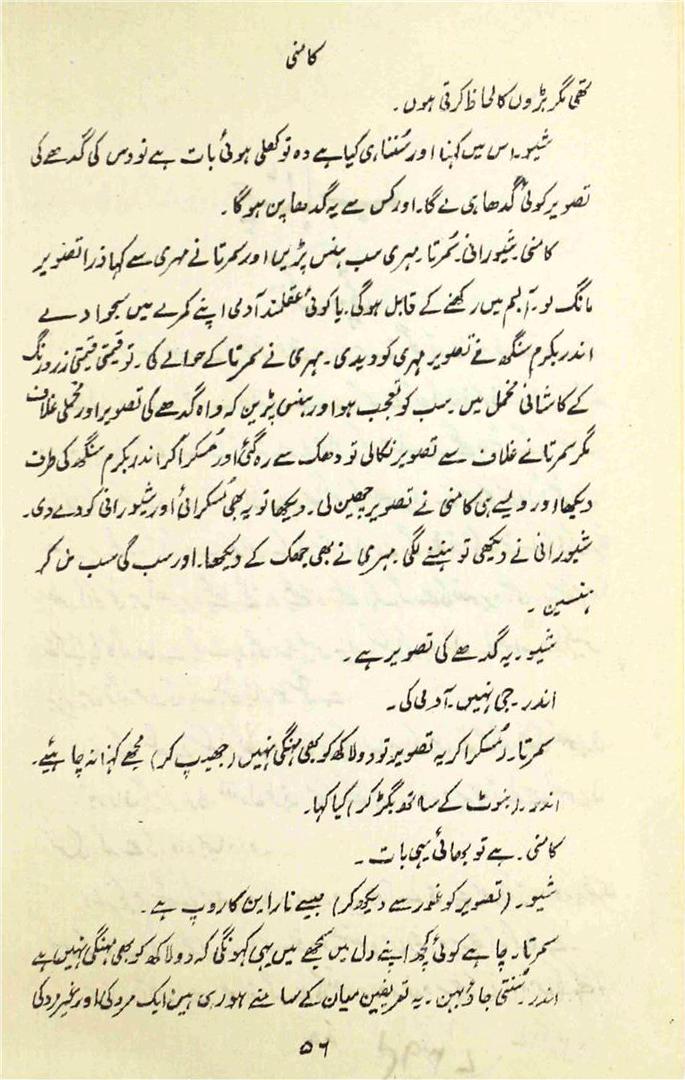 کامنی
تھی مگر بڑوں کا لحاظ کرتی ہوں۔
شیو۔ اس میں کہنا اور سُننا ہی کیا ہے وہ تو کھلی ہوئی بات ہے نو دس کی گدھے کی
تصویر کوئی گدھا ہی لے گا۔ اور کس سے یہ گدھا پن ہوگا۔
کامنی۔ شیورانی۔ سُمرتا۔ مہری سب ہنس پڑیں اور سمرتا نے مہری سے کہا ذرا تصویر
مانگ لو۔ آلبم میں رکھنے کے قابل ہوگی۔ یا کوئی عقلمند آدمی اپنے کمرے میں سجوا دے
اندر بکرم سنگھ نے تصویر مہری کو دیدی۔ مہری نے سمرتا کے حوالے کی۔ تو قیمتی قیمتی زرد رنگ
کے کاشانی مخمل میں۔ سب کو تعجب ہوا ور ہنس پڑین کہ واہ گدھے کی تصویر اور مخملی غلاف
مگر سمرتا نے غلاف سے تصویر نکالی تو دھک سے رہ گئی اور مُسکرا کر اندر بکرم سنگھ کی طرف
دیکھا اور ویسے ہی کامنی نے تصویر چھین لی۔ دیکھا تو یہ بھی مُسکرائی اور شیورانی کو دے دی۔
شیورانی نے دیکھی تو ہنسنے لگی۔ مہری نے بھی جھک کے دیکھا۔ اور سب کی سب مل کر
ہنسین۔
شیو۔ یہ گدھے کی تصویر ہے۔
اندر۔ جی نہیں۔ آدمی کی۔
سمرتا۔ (مُسکرا کر یہ تصویر تو دو لاکھ کو بھی مہنگی نہیں (جھیپ کر) مجھے کہنا نہ چاہیئے۔
اندر۔ (بنوٹ کے ساتھ بگڑ کر) کیا کہا۔
کامنی۔ ہے تو بھائی یہی بات۔
شیو۔ (تصویر کو غور سے دیکھ کر) جیسے نارا ین کا روپ ہے۔
سمرتا۔ چاہے کوئی کچھ اپنے دل میں سمجھے میں یہی کہونگی کہ دو لاکھ کو بھی مہنگی نہیں ہے
اندر۔ سُنتی جاؤ بہن۔ یہ تعریفین میان کے سامنے ہو رہی ہیں ایک مرد کی اور غیر مرد کی
۵۶